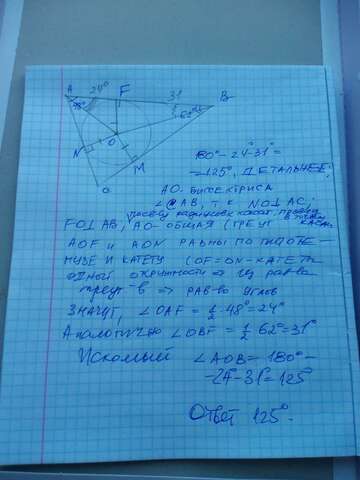 A 24° F 31 B
48° 62°
N O
M
C
180° - 24° - 31° =
= 125°, ДЕТАЛЬНЕЕ:
АО - БИССЕКТРИСА
∠CAB, Т.К NO⊥AC,
FO⊥AB, AO - ОБЩАЯ (ТРЕУГ
AOF И AON РАВНЫ ПО ГИПОТЕ-
НУЗЕ И КАТЕТУ (OF=ON-КАТЕТЫ
ОДНОЙ ОКРУЖНОСТИ => из рав-ва
треуг-в => РАВ-ВО УГЛОВ
ЗНАЧИТ, ∠OAF = 1/2 · 48° = 24°
Аналогично ∠OBF = 1/2 62° = 31°
Искомый ∠AOB = 180° -
- 24° - 31° = 125°
Ответ 125°.